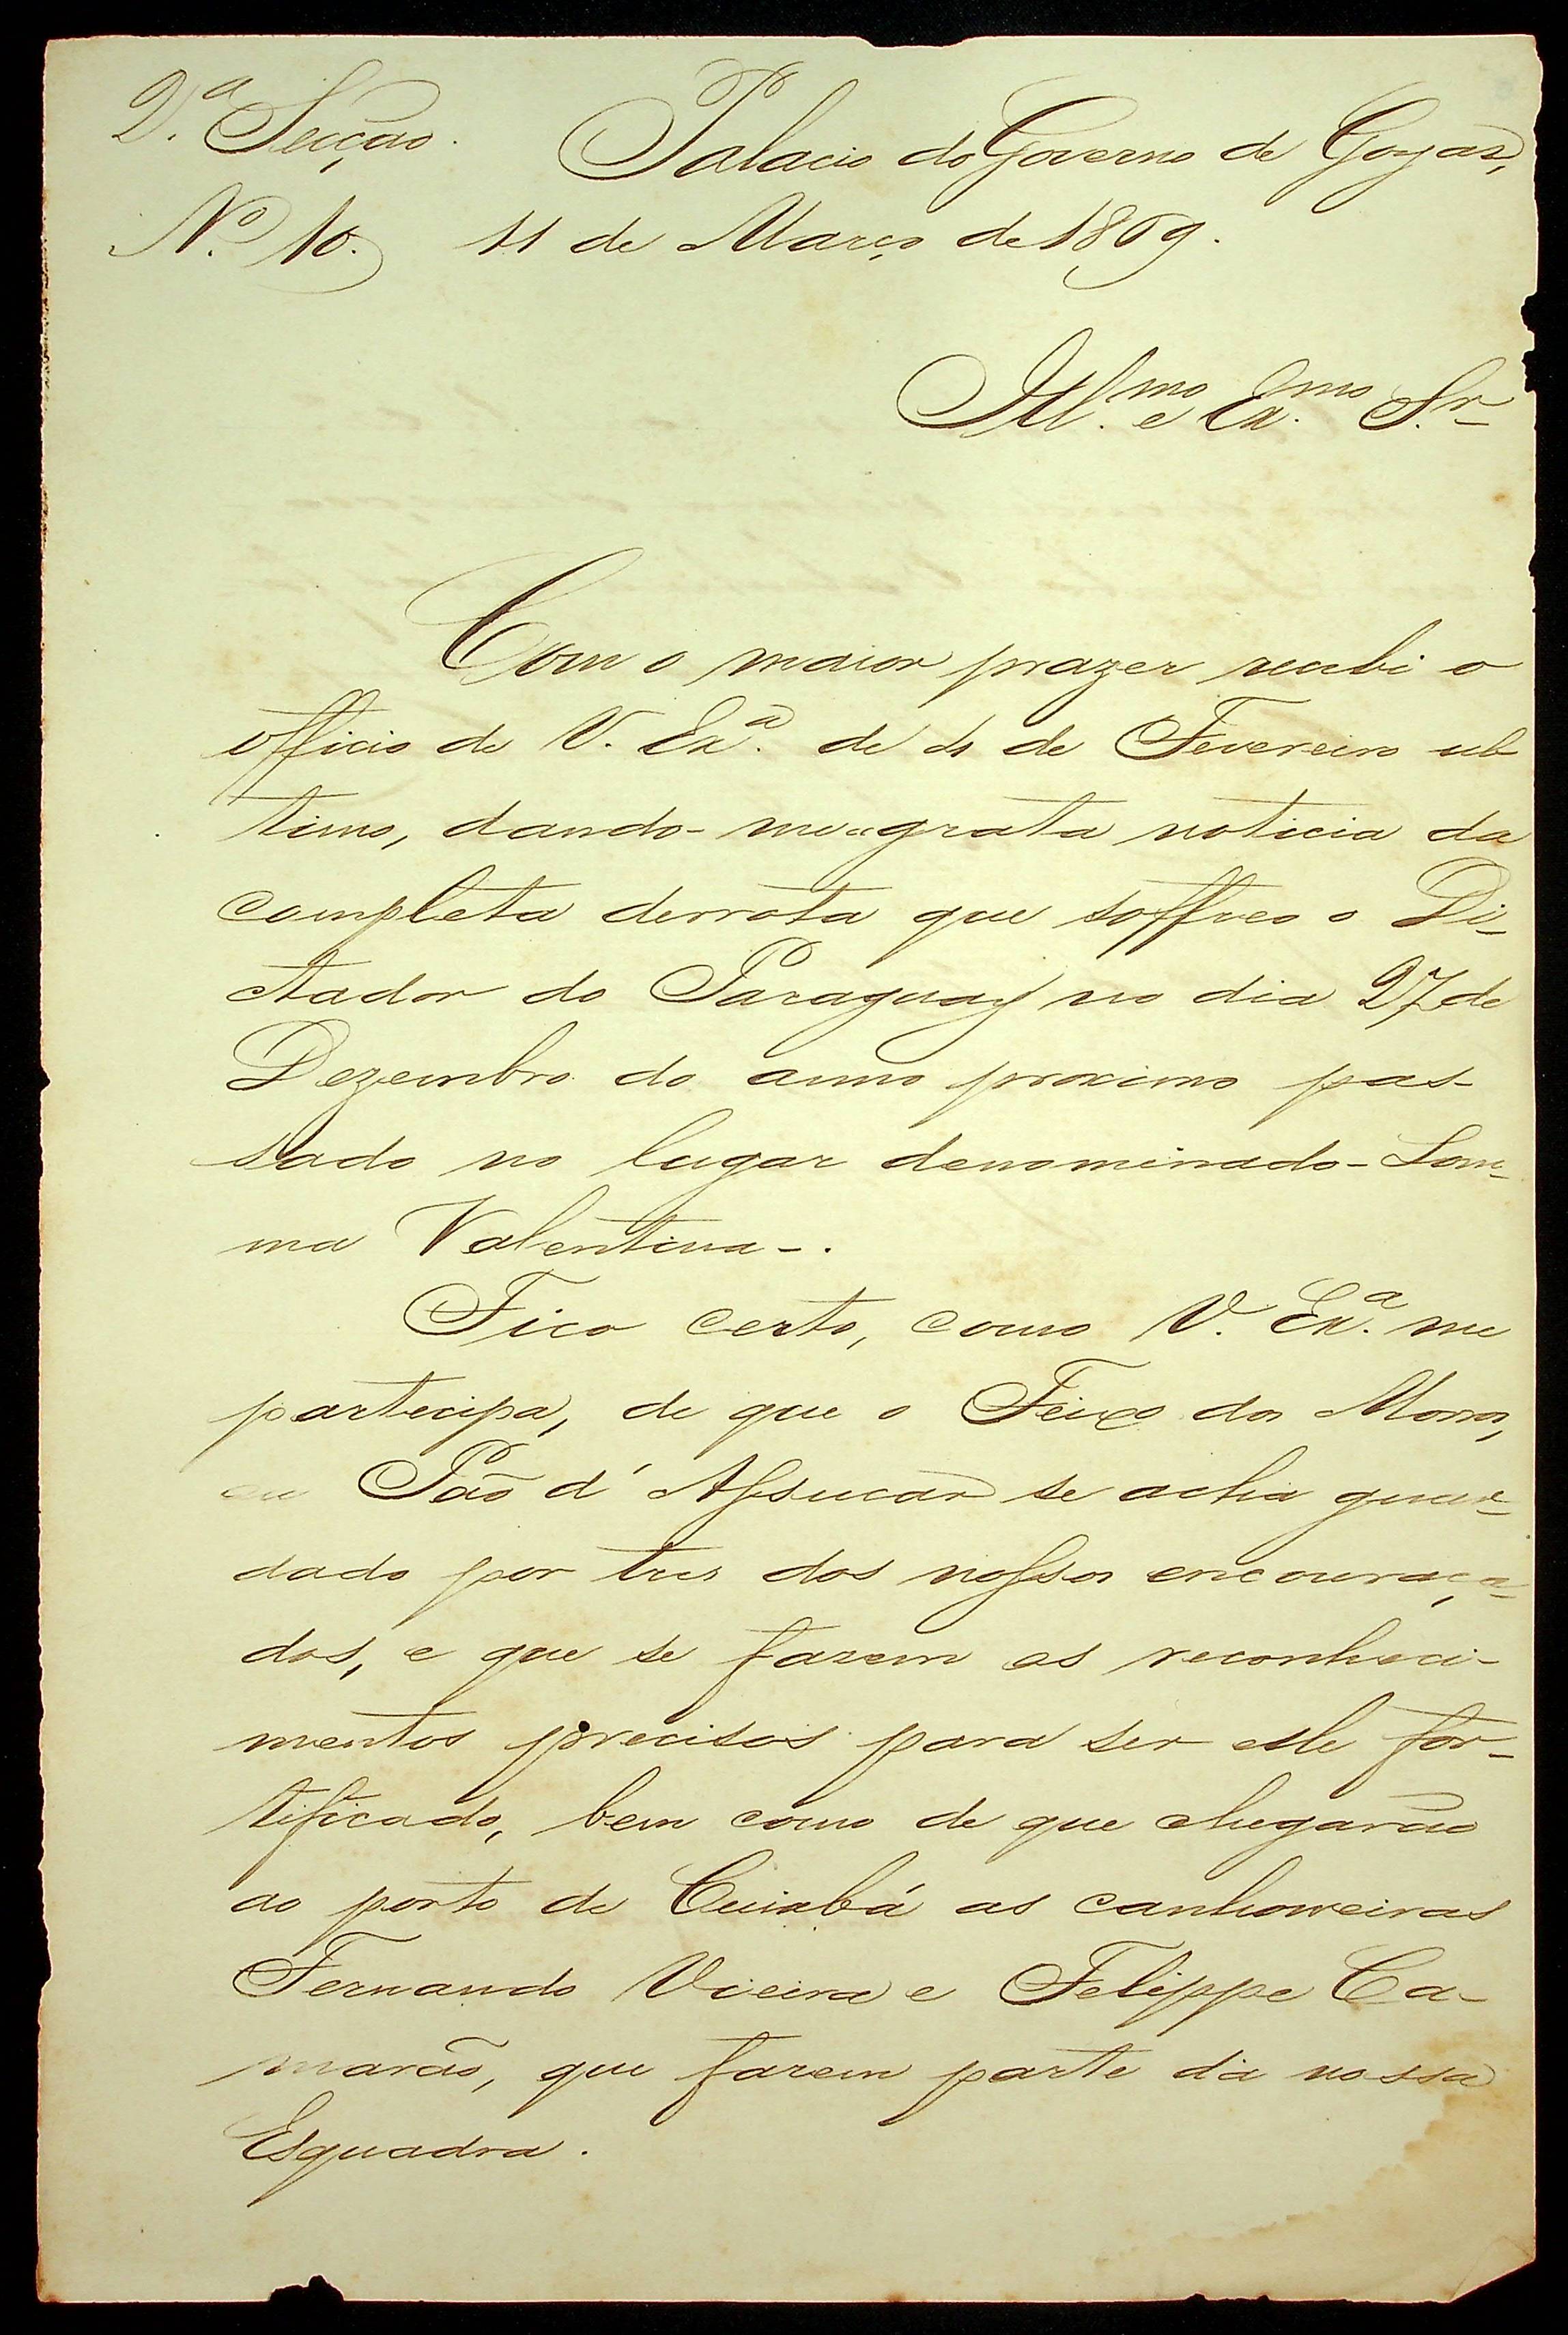 2.ª Secção. Palacio do Governo de Goyaz,
N.º 10. 11 de Março de 1869.
Ill.mo e Ex.mo Sr.
Com o maior prazer recebi o
officio de V. Ex.ª de 4 de Fevereiro ul
timo, dando-me a grata noticia da
completa derrota que soffreo o Di-
ctador do Paraguay no dia 27 de
Dezembro do anno proximo pas-
sado no lugar denominado - Lom-
ma Valentina -.
Fico certo, como V. Ex.ª me
partecipa, de que o Feixo dos Morros,
ou Pão d'Assucar se acha guar-
dado por tres dos nossos encouraça-
dos, e que se fazem os reconheci-
mentos precisos para ser elle for-
tificado, bem como de que chegarão
ao porto de Cuiabá as canhoneiras
Fernando Vieira e Felippe Ca-
marão, que fazem parte da nossa
Esquadra.